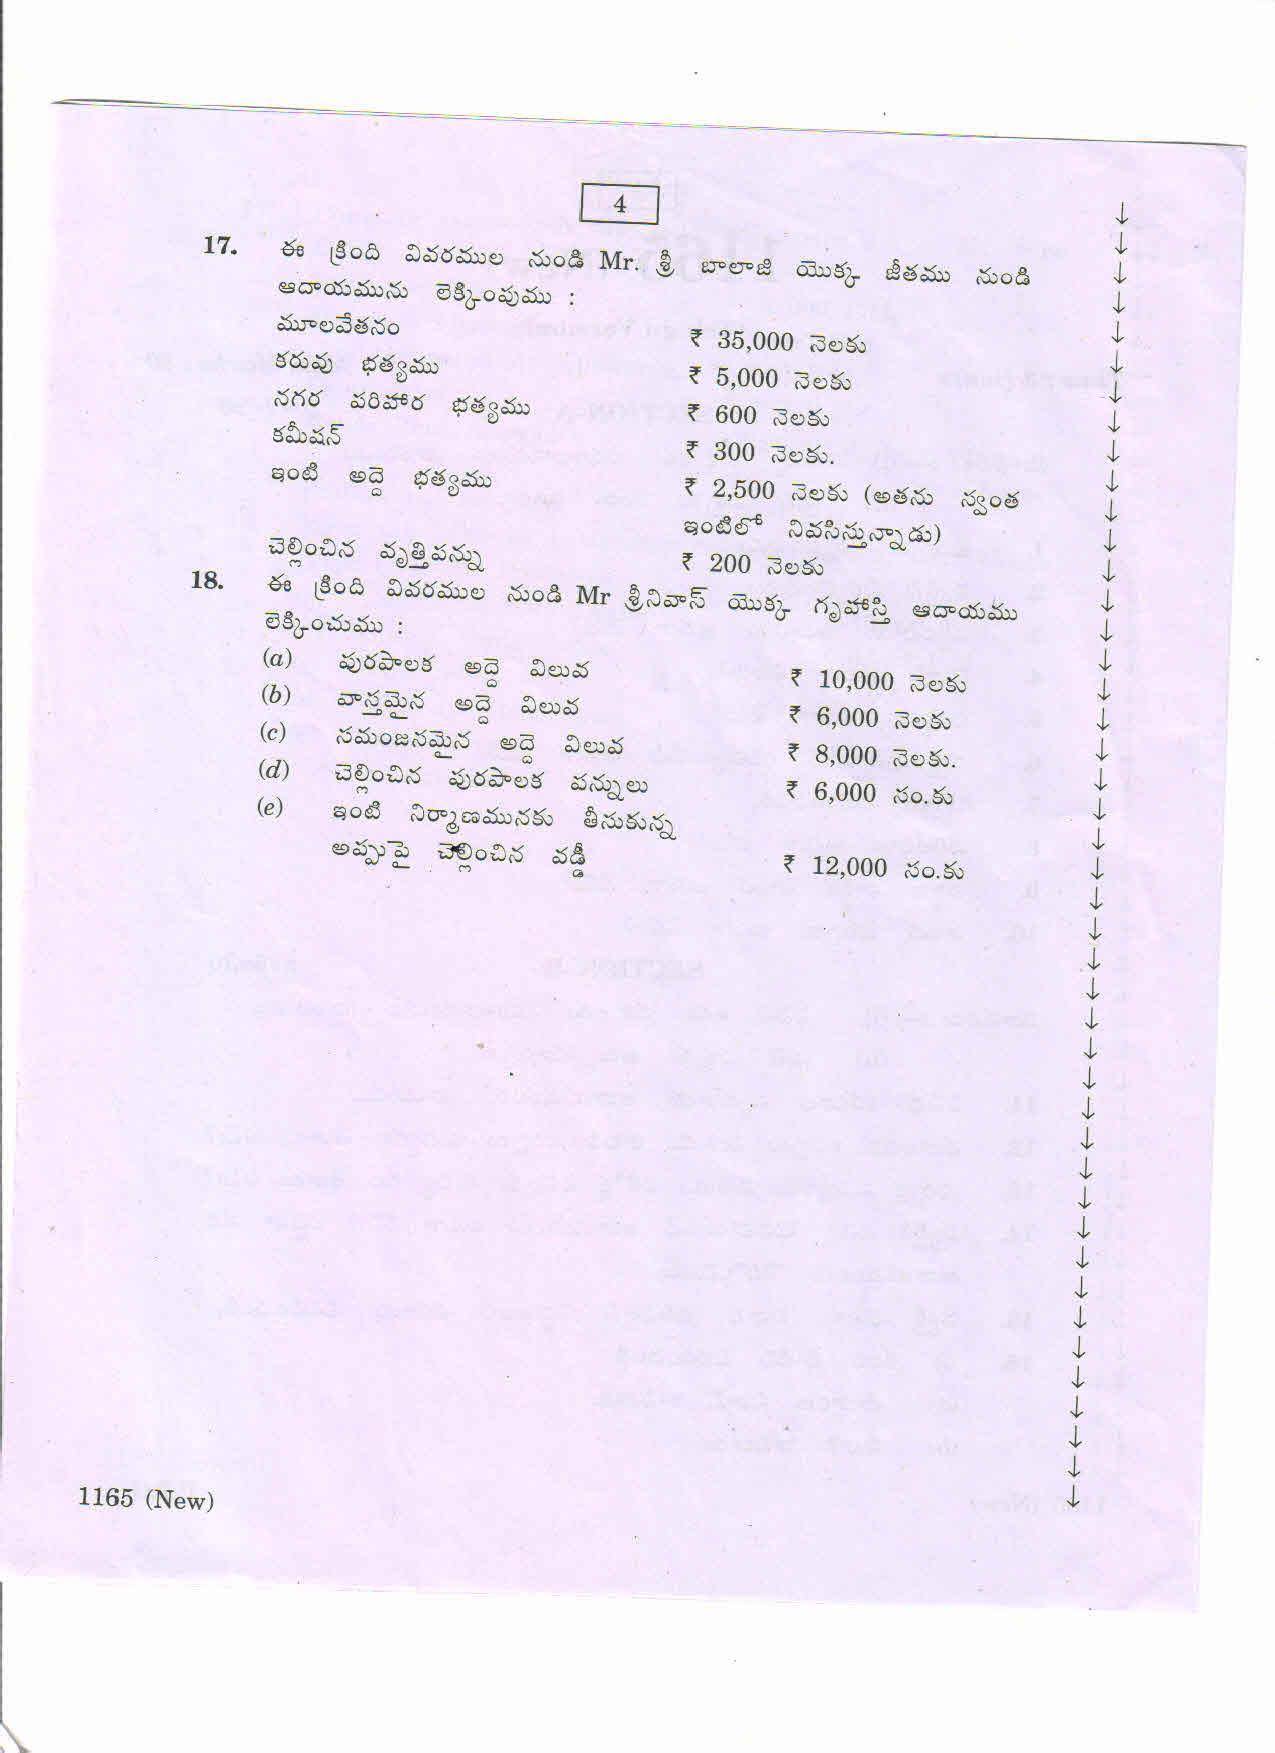 4
17. ఈ క్రింది వివరముల నుండి Mr. శ్రీ బాలాజి యొక్క జీతము నుండి
ఆదాయమును లెక్కింపుము :
మూలవేతనం ₹ 35,000 నెలకు
కరువు భత్యము ₹ 5,000 నెలకు
నగర పరిహార భత్యము ₹ 600 నెలకు
కమీషన్ ₹ 300 నెలకు.
ఇంటి అద్దె భత్యము ₹ 2,500 నెలకు (అతను స్వంత
ఇంటిలో నివసిస్తున్నాడు)
చెల్లించిన వృత్తిపన్ను ₹ 200 నెలకు
18. ఈ క్రింది వివరముల నుండి Mr శ్రీనివాస్ యొక్క గృహాస్తి ఆదాయము
లెక్కించుము :
(a) పురపాలక అద్దె విలువ ₹ 10,000 నెలకు
(b) వాస్తమైన అద్దె విలువ ₹ 6,000 నెలకు
(c) సమంజనమైన అద్దె విలువ ₹ 8,000 నెలకు.
(d) చెల్లించిన పురపాలక పన్నులు ₹ 6,000 సం.కు
(e) ఇంటి నిర్మాణమునకు తీసుకున్న
అప్పుపై చెల్లించిన వడ్డీ ₹ 12,000 సం.కు
1165 (New)